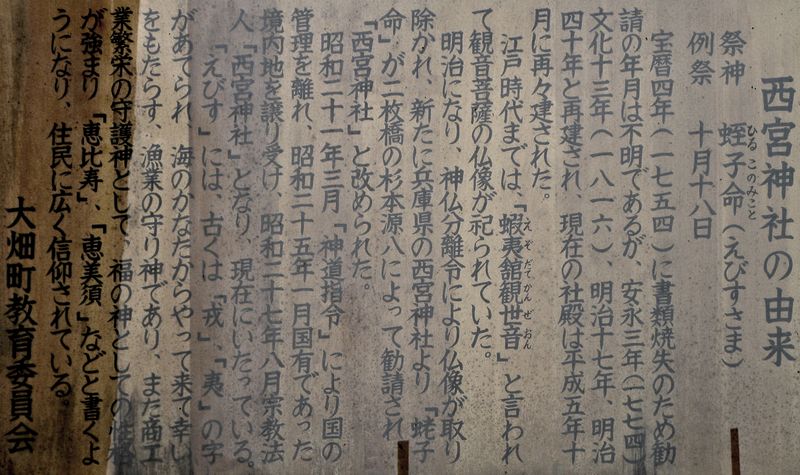 西宮神社の由来
祭神　蛭子命(えびすさま)
ひるこのみこと
例祭　十月十八日
宝暦四年(一七五四)に書類焼失のため勧
請の年月は不明であるが、安永三年(一七七四)
文化十三年(一八一六)、明治十七年、明治
四十年と再建され、現在の社殿は平成五年十
月に再々建された。
江戸時代までは、「蝦夷舘観世音」と言われ
えぞだてかんぜおん
て観音菩薩の仏像が祀られていた。
明治になり、神仏分離令により仏像が取り
除かれ、新たに兵庫県の西宮神社より「蛯子
命」が二枚橋の杉本源八によって勧請され
「西宮神社」と改められた。
昭和二十一年三月「神道指令」により国の
管理を離れ、昭和二十五年一月国有であった
境内地を譲り受け、昭和二十七年八月宗教法
人「西宮神社」となり、現在にいたっている。
「えびす」には、古くは「戎」、「夷」の字
があてられ　海のかなたからやって来て幸い
をもたらす、漁業の守り神であり、また商工
業繁栄の守護神として、福の神としての性格
が強まり、「恵比寿」、「恵美須」などと書くよ
うになり、住民に広く信仰されている。
大畑町教育委員会